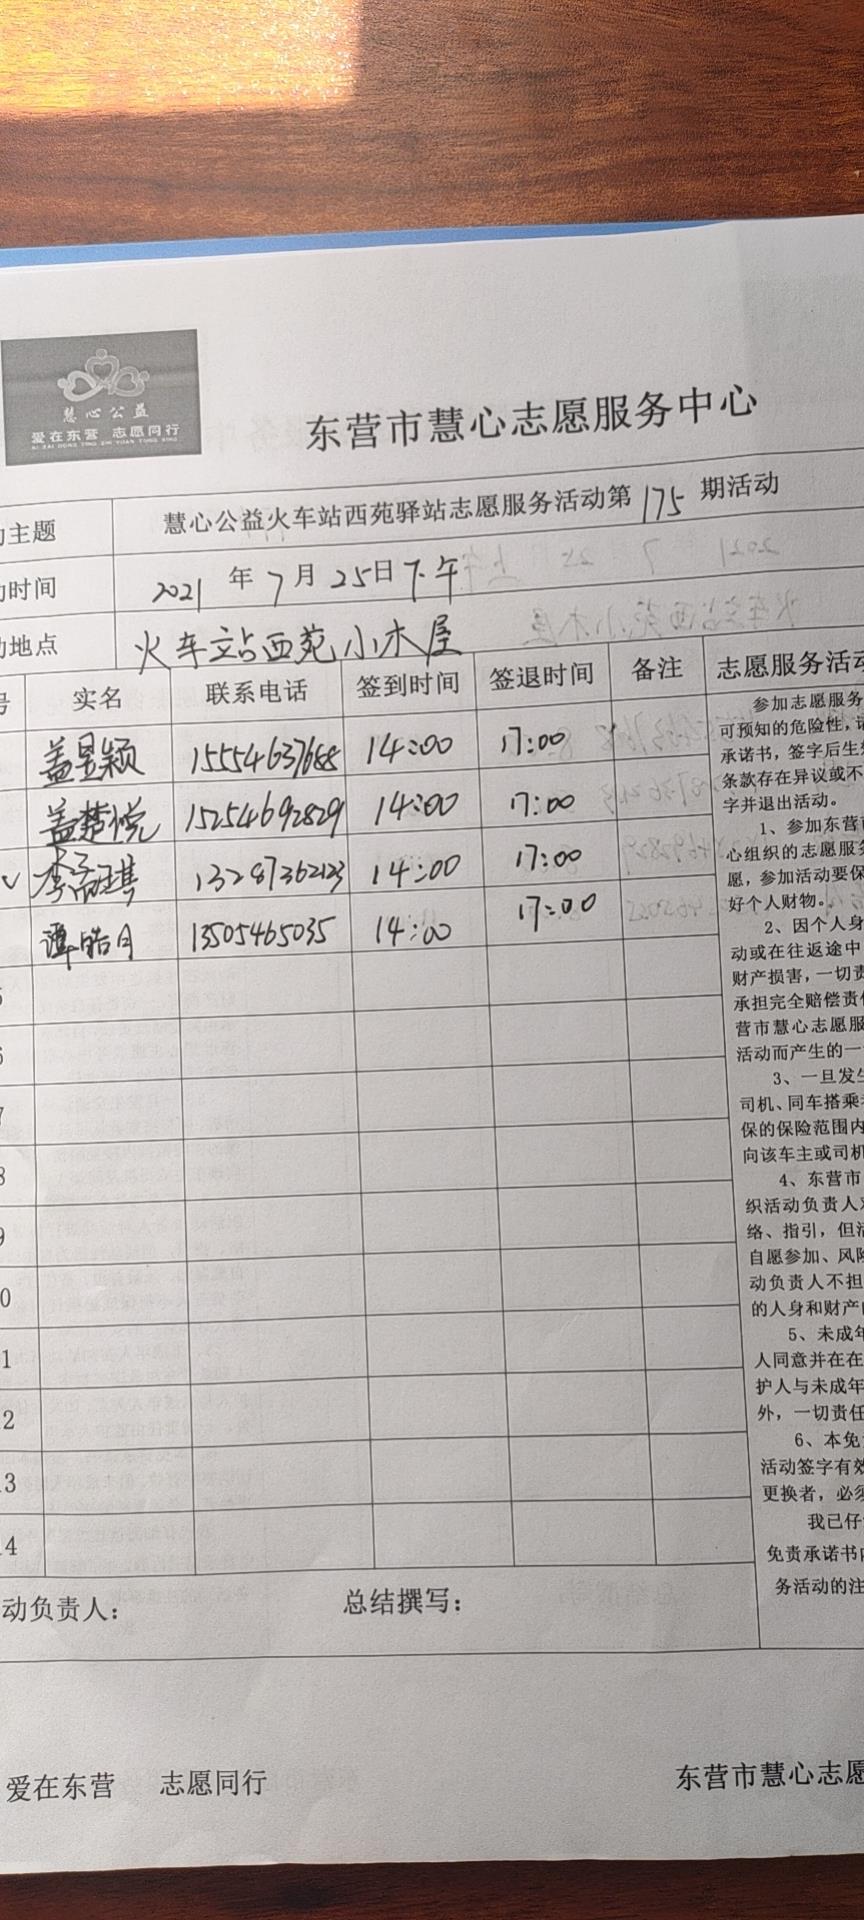 慧心公益
爱在东营 志愿同行
AI ZAI DONG YING ZHI YUAN TONG XING
东营市慧心志愿服务中心
主题 慧心公益火车站西苑驿站志愿服务活动第175期活动
时间 2021年7月25日下午
地点 火车站西苑小木屋
号 实名 联系电话 签到时间 签退时间 备注 志愿服务活动
盖昱颖 15554637688 14:00 17:00
盖楚悦 15254692829 14:00 17:00
13287362123 14:00 17:00
谭皓月 13505465035 14:00 17:00
5
6
7
8
9
0
1
2
3
4
参加志愿服务
可预知的危险性,
承诺书,签字后生
条款存在异议或不
字并退出活动。
1、参加东营
心组织的志愿服务
愿,参加活动要保
好个人财物。
2、因个人身
动或在往返途中
财产损害,一切责
承担完全赔偿责任
营市慧心志愿服
活动而产生的一
3、一旦发生
司机、同车搭乘
保的保险范围内
向该车主或司机
4、东营市
织活动负责人
络、指引,但活
自愿参加、风险
动负责人不担
的人身和财产
5、未成年
人同意并在在
护人与未成年
外,一切责任
6、本免
活动签字有效
更换者,必须
我已仔
免责承诺书内
务活动的注
动负责人: 总结撰写:
爱在东营 志愿同行 东营市慧心志愿